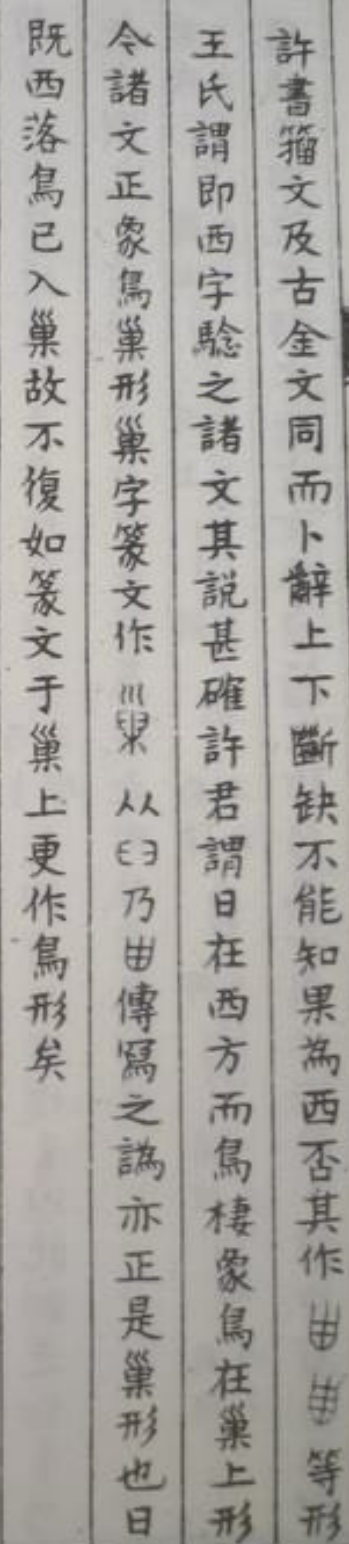 許書籀文及古金文同而卜辭上下斷缺不能知果為西否其作等形
王氏謂即西字驗之諸文其說甚確許君謂日在西方而鳥棲象鳥在巢上形
今諸文正象鳥巢形巢字篆文作从𦥑乃甶傳寫之譌亦正是巢形也日
既西落鳥已入巢故不復如篆文于巢上更作鳥形矣